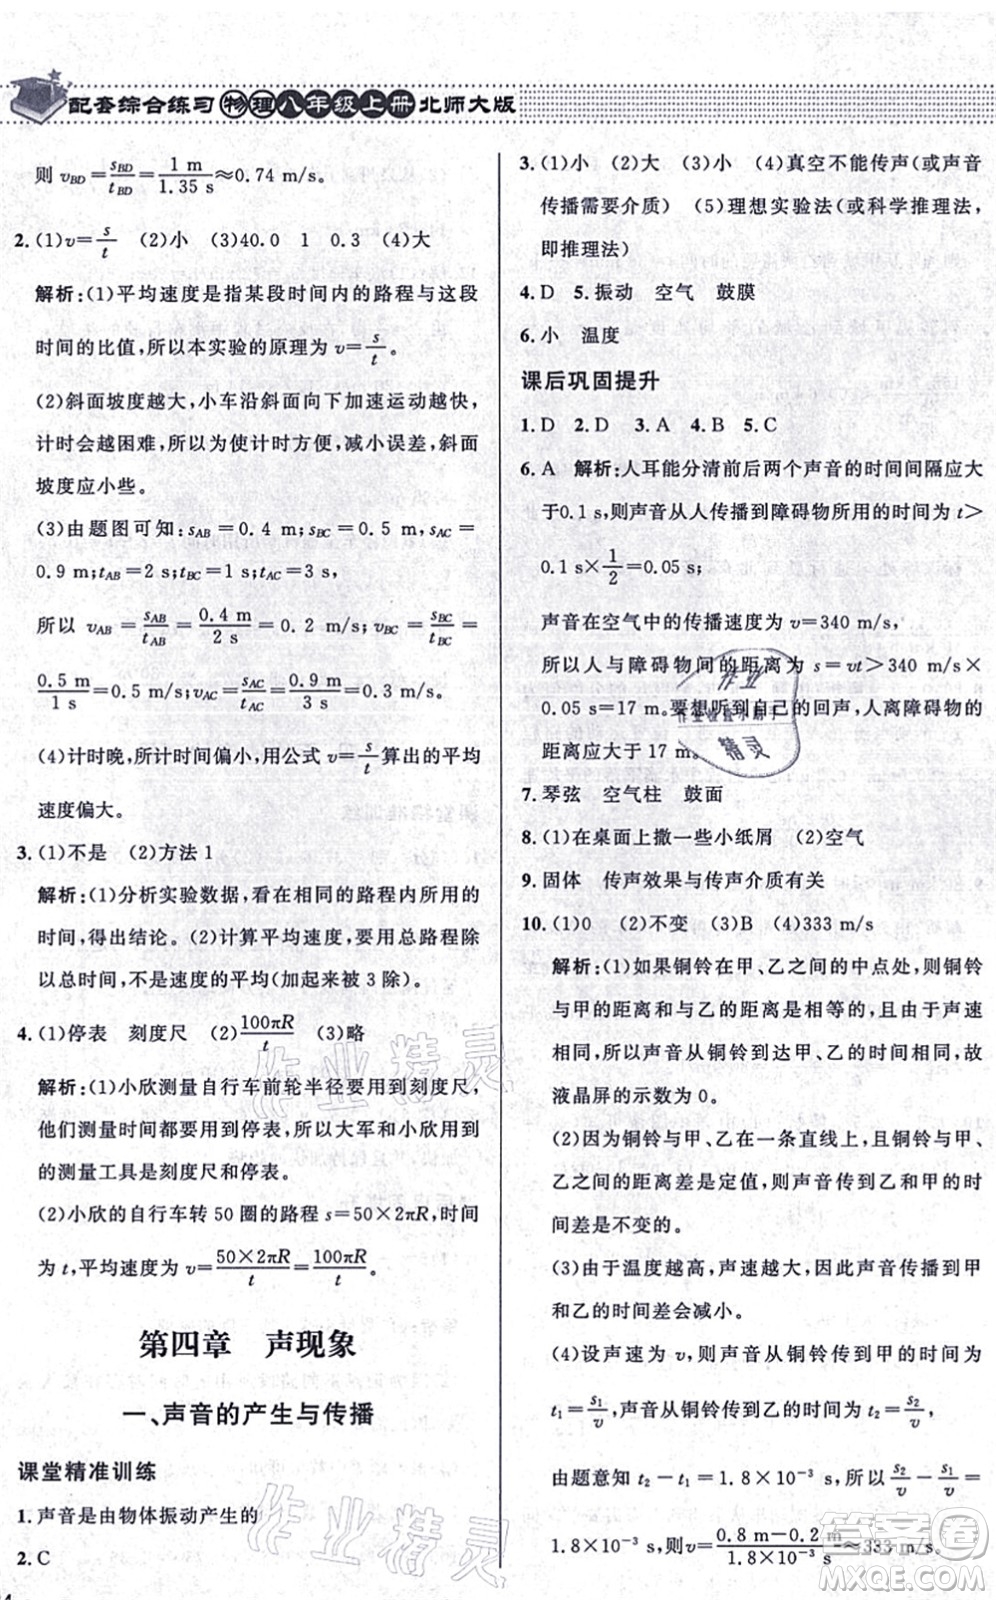 配套综合练习 物理八年级上册 北师大版
则 v_BD=s_BD/t_BD=1 m/1.35 s≈0.74 m/s。
2. (1)v=s/t (2)小 (3)40.0 1 0.3 (4)大
解析:(1)平均速度是指某段时间内的路程与这段
时间的比值,所以本实验的原理为 v=s/t。
(2)斜面坡度越大,小车沿斜面向下加速运动越快,
计时会越困难,所以为使计时方便,减小误差,斜面
坡度应小些。
(3)由题图可知:s_AB=0.4 m;s_BC=0.5 m,s_AC=
0.9 m;t_AB=2 s;t_BC=1 s;t_AC=3 s,
所以 v_AB=s_AB/t_AB=0.4 m/2 s=0.2 m/s;v_BC=s_BC/t_BC=
0.5 m/1 s=0.5 m/s,v_AC=s_AC/t_AC=0.9 m/3 s=0.3 m/s。
(4)计时晚,所计时间偏小,用公式 v=s/t算出的平均
速度偏大。
3. (1)不是 (2)方法 1
解析:(1)分析实验数据,看在相同的路程内所用的
时间,得出结论。(2)计算平均速度,要用总路程除
以总时间,不是速度的平均(加起来被 3 除)。
4. (1)停表 刻度尺 (2)100πR/t (3)略
解析:(1)小欣测量自行车前轮半径要用到刻度尺,
他们测量时间都要用停表,所以大军和小欣用到
的测量工具是刻度尺和停表。
(2)小欣的自行车转 50 圈的路程 s=50×2πR,时间
为 t,平均速度为 v=50×2πR/t=100πR/t。
第四章 声现象
一、声音的产生与传播
课堂精准训练
1. 声音是由物体振动产生的
2. C
3. (1)小 (2)大 (3)小 (4)真空不能传声(或声音
传播需要介质) (5)理想实验法(或科学推理法,
即推理法)
4. D 5. 振动 空气 鼓膜
6. 小 温度
课后巩固提升
1. D 2. D 3. A 4. B 5. C
6. A 解析:人耳能分清前后两个声音的时间间隔应大
于0.1 s,则声音从人传播到障碍物所用的时间为 t>
0.1 s×1/2=0.05 s;
声音在空气中的传播速度为 v=340 m/s,
所以人与障碍物间的距离为 s=vt>340 m/s×
0.05 s=17 m。要想听到自己的回声,人离障碍物的
距离应大于 17 m。
7. 琴弦 空气柱 鼓面
8. (1)在桌面上撒一些小纸屑 (2)空气
9. 固体 传声效果与传声介质有关
10. (1)0 (2)不变 (3)B (4)333 m/s
解析:(1)如果铜铃在甲、乙之间的中点处,则铜铃
与甲的距离和与乙的距离是相等的,并且由于声速
相同,所以声音从铜铃到达甲、乙的时间相同,故
液晶屏的示数为 0。
(2)因为铜铃与甲、乙在一条直线上,且铜铃与甲、
乙之间的距离差是定值,则声音传到乙和甲的时
间差是不变的。
(3)由于温度越高,声速越大,因此声音传播到甲
和乙的时间差会减小。
(4)设声速为 v,则声音从铜铃传到甲的时间为
t₁=s₁/v,声音从铜铃传到乙的时间为 t₂=s₂/v,
由题意知 t₂-t₁=1.8×10⁻³ s,所以 s₂/v-s₁/v=
1.8×10⁻³ s,则v=0.8 m-0.2 m/1.8×10⁻³ s≈333 m/s。
作业精灵
作业精灵
作业
精灵
答案圈
MXQE.COM